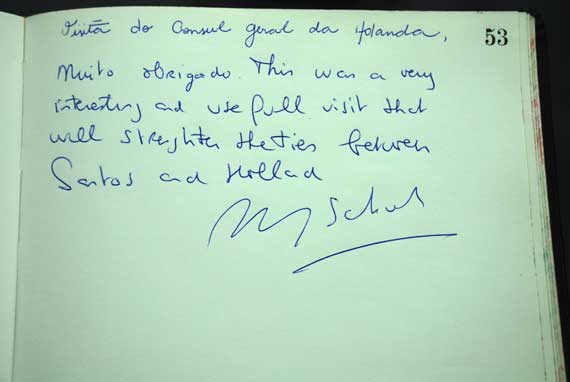 Visita do Consul geral da Holanda,
53
Muito obrigado. This was a very
interesting and usefull visit that
will strenghten the ties between
Santos and Holland